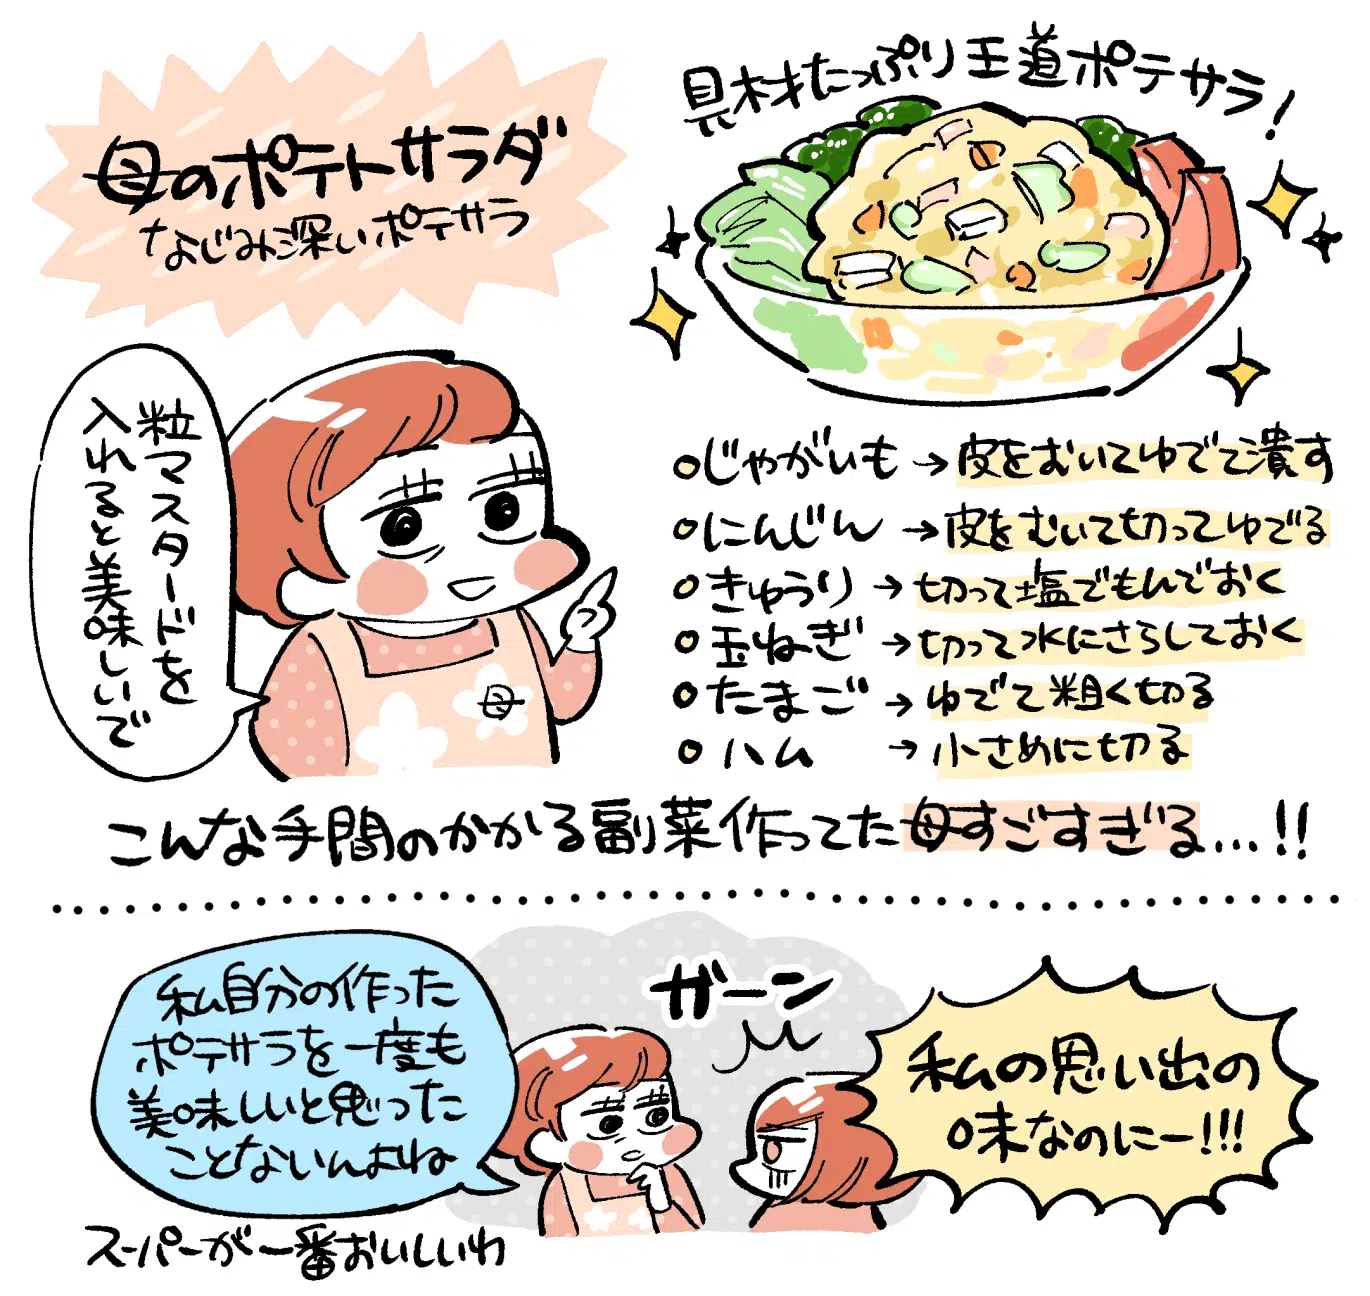 母のポテトサラダ
なじみ深いポテサラ
具材たっぷり王道ポテサラ!
粒マスタードを
入れると美味しいで
母
じゃがいも→皮をむいてゆでて潰す
にんじん→皮をむいて切ってゆでる
きゅうり→切って塩でもんでおく
玉ねぎ→切って水にさらしておく
たまご→ゆでて粗く切る
ハム→小さめに切る
こんな手間のかかる副菜作ってた母すごすぎる...!!
私自分の作った
ポテサラを一度も
美味しいと思った
ことないんよね
スーパーが一番おいしいわ
ガーン
私の思い出の
味なのにー!!!